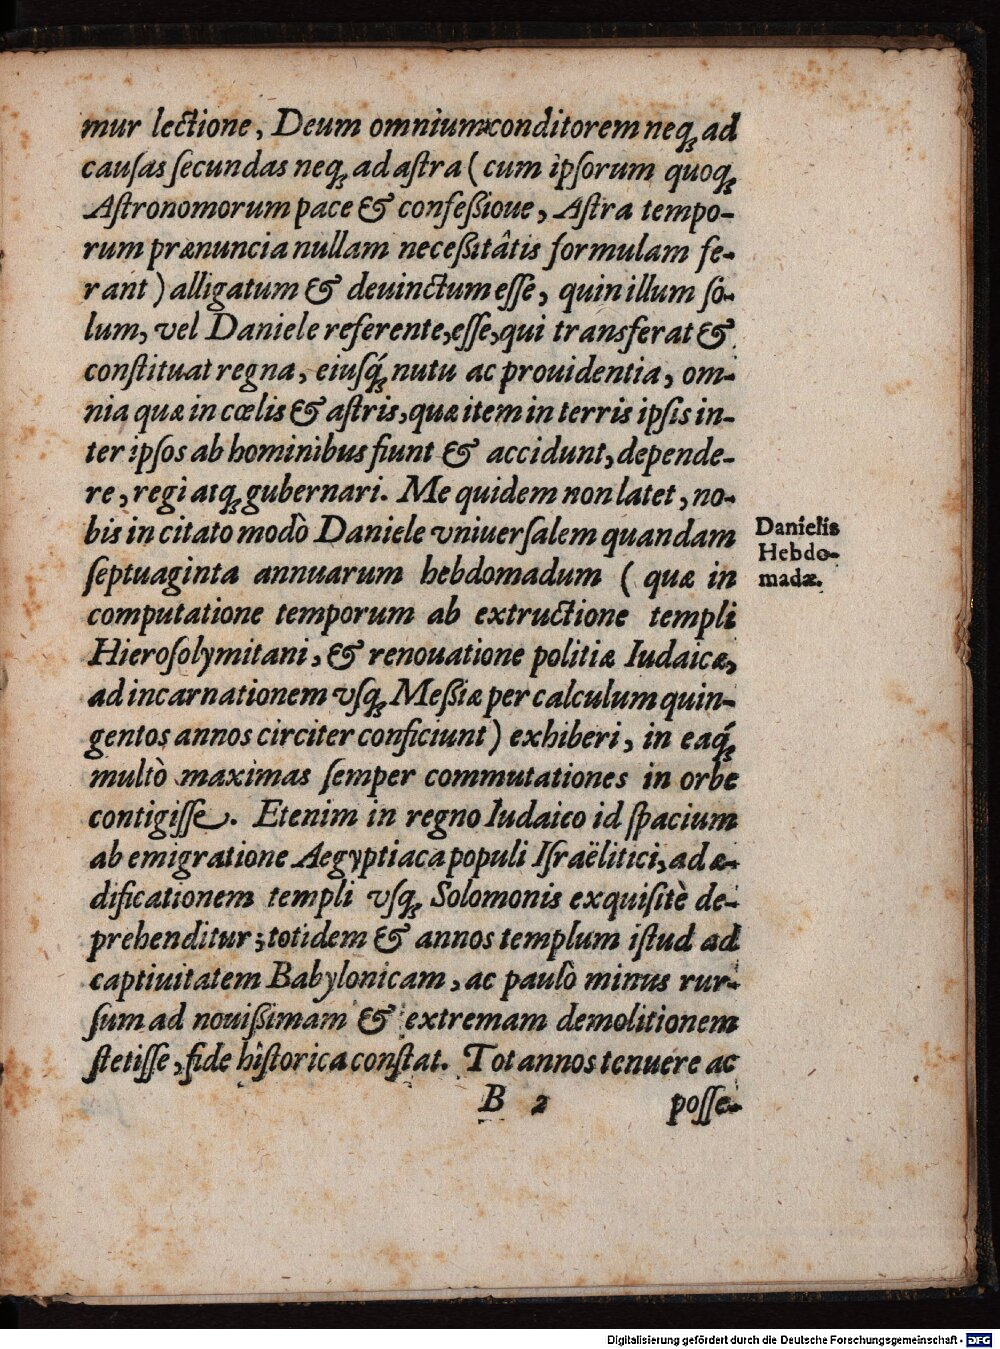 mur lectione, Deum omnium conditorem neq; ad
causas secundas neq; ad astra (cum ipsorum quoq;
Astronomorum pace & confeßioue, Astra tempo-
rum prænuncia nullam neceßitâtis formulam fe-
rant) alligatum & deuinctum esse, quin illum so-
lum, vel Daniele referente, esse, qui transferat &
constituat regna, eiusq́; nutu ac prouidentia, om-
nia quæ in cœlis & astris, quæ item in terris ipsis in-
ter ipsos ab hominibus fiunt & accidunt, depende-
re, regi atq; gubernari. Me quidem non latet, no-
bis in citato modò Daniele vniuersalem quandam
septuaginta annuarum hebdomadum ( quæ in
computatione temporum ab extructione templi
Hierosolymitani, & renouatione politiæ Iudaicæ,
ad incarnationem vsq; Meßiæ per calculum quin-
gentos annos circiter conficiunt) exhiberi, in eaq́;
multò maximas semper commutationes in orbe
contigisse. Etenim in regno Iudaico id spacium
ab emigratione Aegyptiaca populi Israëlitici, ad æ-
dificationem templi vsq; Solomonis exquisitè de-
prehenditur; totidem & annos templum istud ad
captiuitatem Babylonicam, ac paulò minus rur-
sum ad nouißimam & extremam demolitionem
stetisse, fide historica constat. Tot annos tenuere ac
B 2 posse-
Danielis
Hebdo-
madæ.
Digitalisierung gefördert durch die Deutsche Forschungsgemeinschaft - DFG